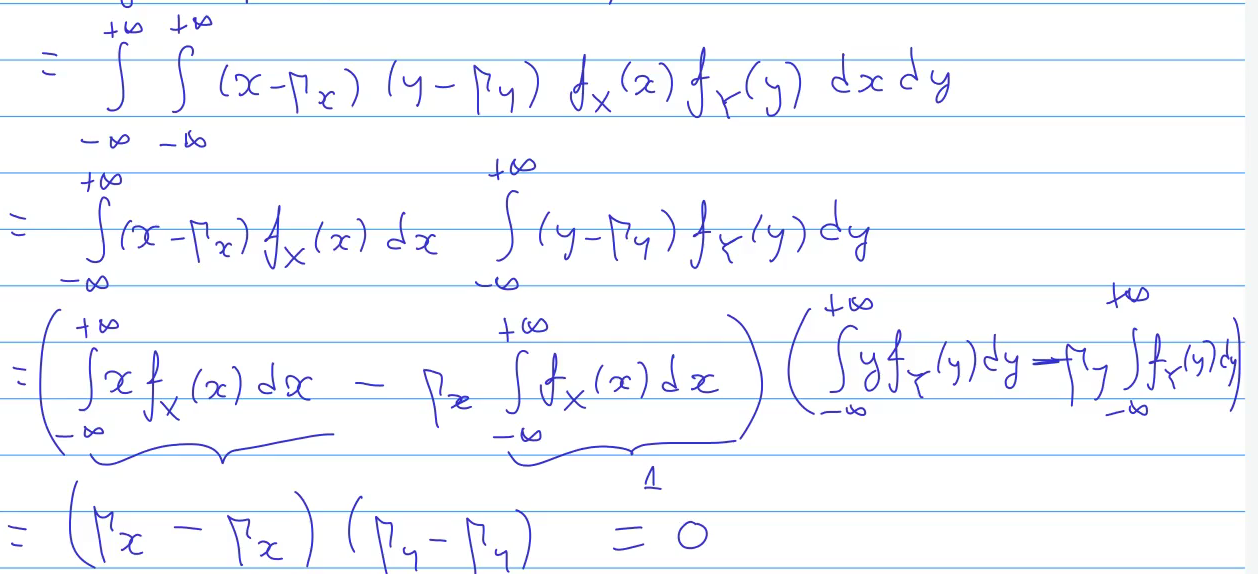 = ∫_{-∞}^{+∞} ∫_{-∞}^{+∞} (x-μ_x) (y-μ_y) f_X(x) f_Y(y) dx dy
= ∫_{-∞}^{+∞} (x-μ_x) f_X(x) dx ∫_{-∞}^{+∞} (y-μ_y) f_Y(y) dy
= ( ∫_{-∞}^{+∞} x f_X(x) dx - μ_x ∫_{-∞}^{+∞} f_X(x) dx ) ( ∫_{-∞}^{+∞} y f_Y(y) dy - μ_y ∫_{-∞}^{+∞} f_Y(y) dy )
1
= (μ_x - μ_x) (μ_y - μ_y) = 0